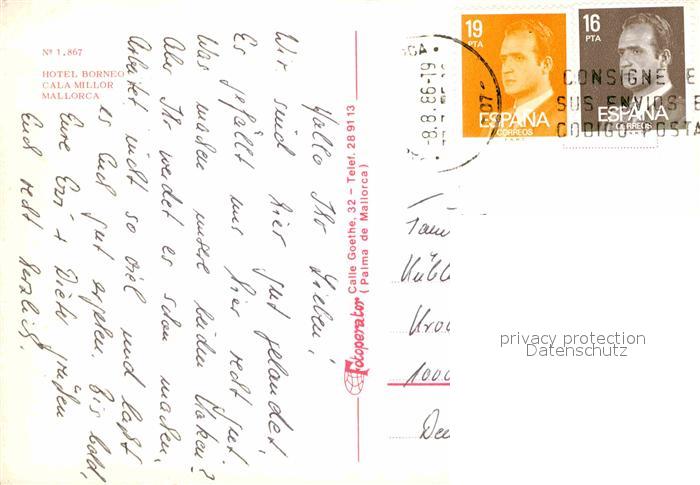 Nº 1.867
HOTEL BORNEO
CALA MILLOR
MALLORCA
Hallo Ihr Lieben!
Wir sind hier gut gelandet.
Es gefällt uns hier recht gut.
Was machen unsere beiden Staken?
Aber Ihr werdet es schon machen.
Arbeitet nicht so viel und laßt
es Euch gut ergehen. Bis bald,
Eure Erni + Dieter grüßen
Euch recht herzlich.
Fotoperator Calle Goethe, 32 - Telef. 28 91 13
(Palma de Mallorca)
-8.8.86-19
19
PTA
ESPAÑA
CORREOS
16
PTA
ESPAÑA
CORREOS
CONSIGNE E
SUS ENVIOS E
CODIGO POSTA
Fam
1000
privacy protection
Datenschutz